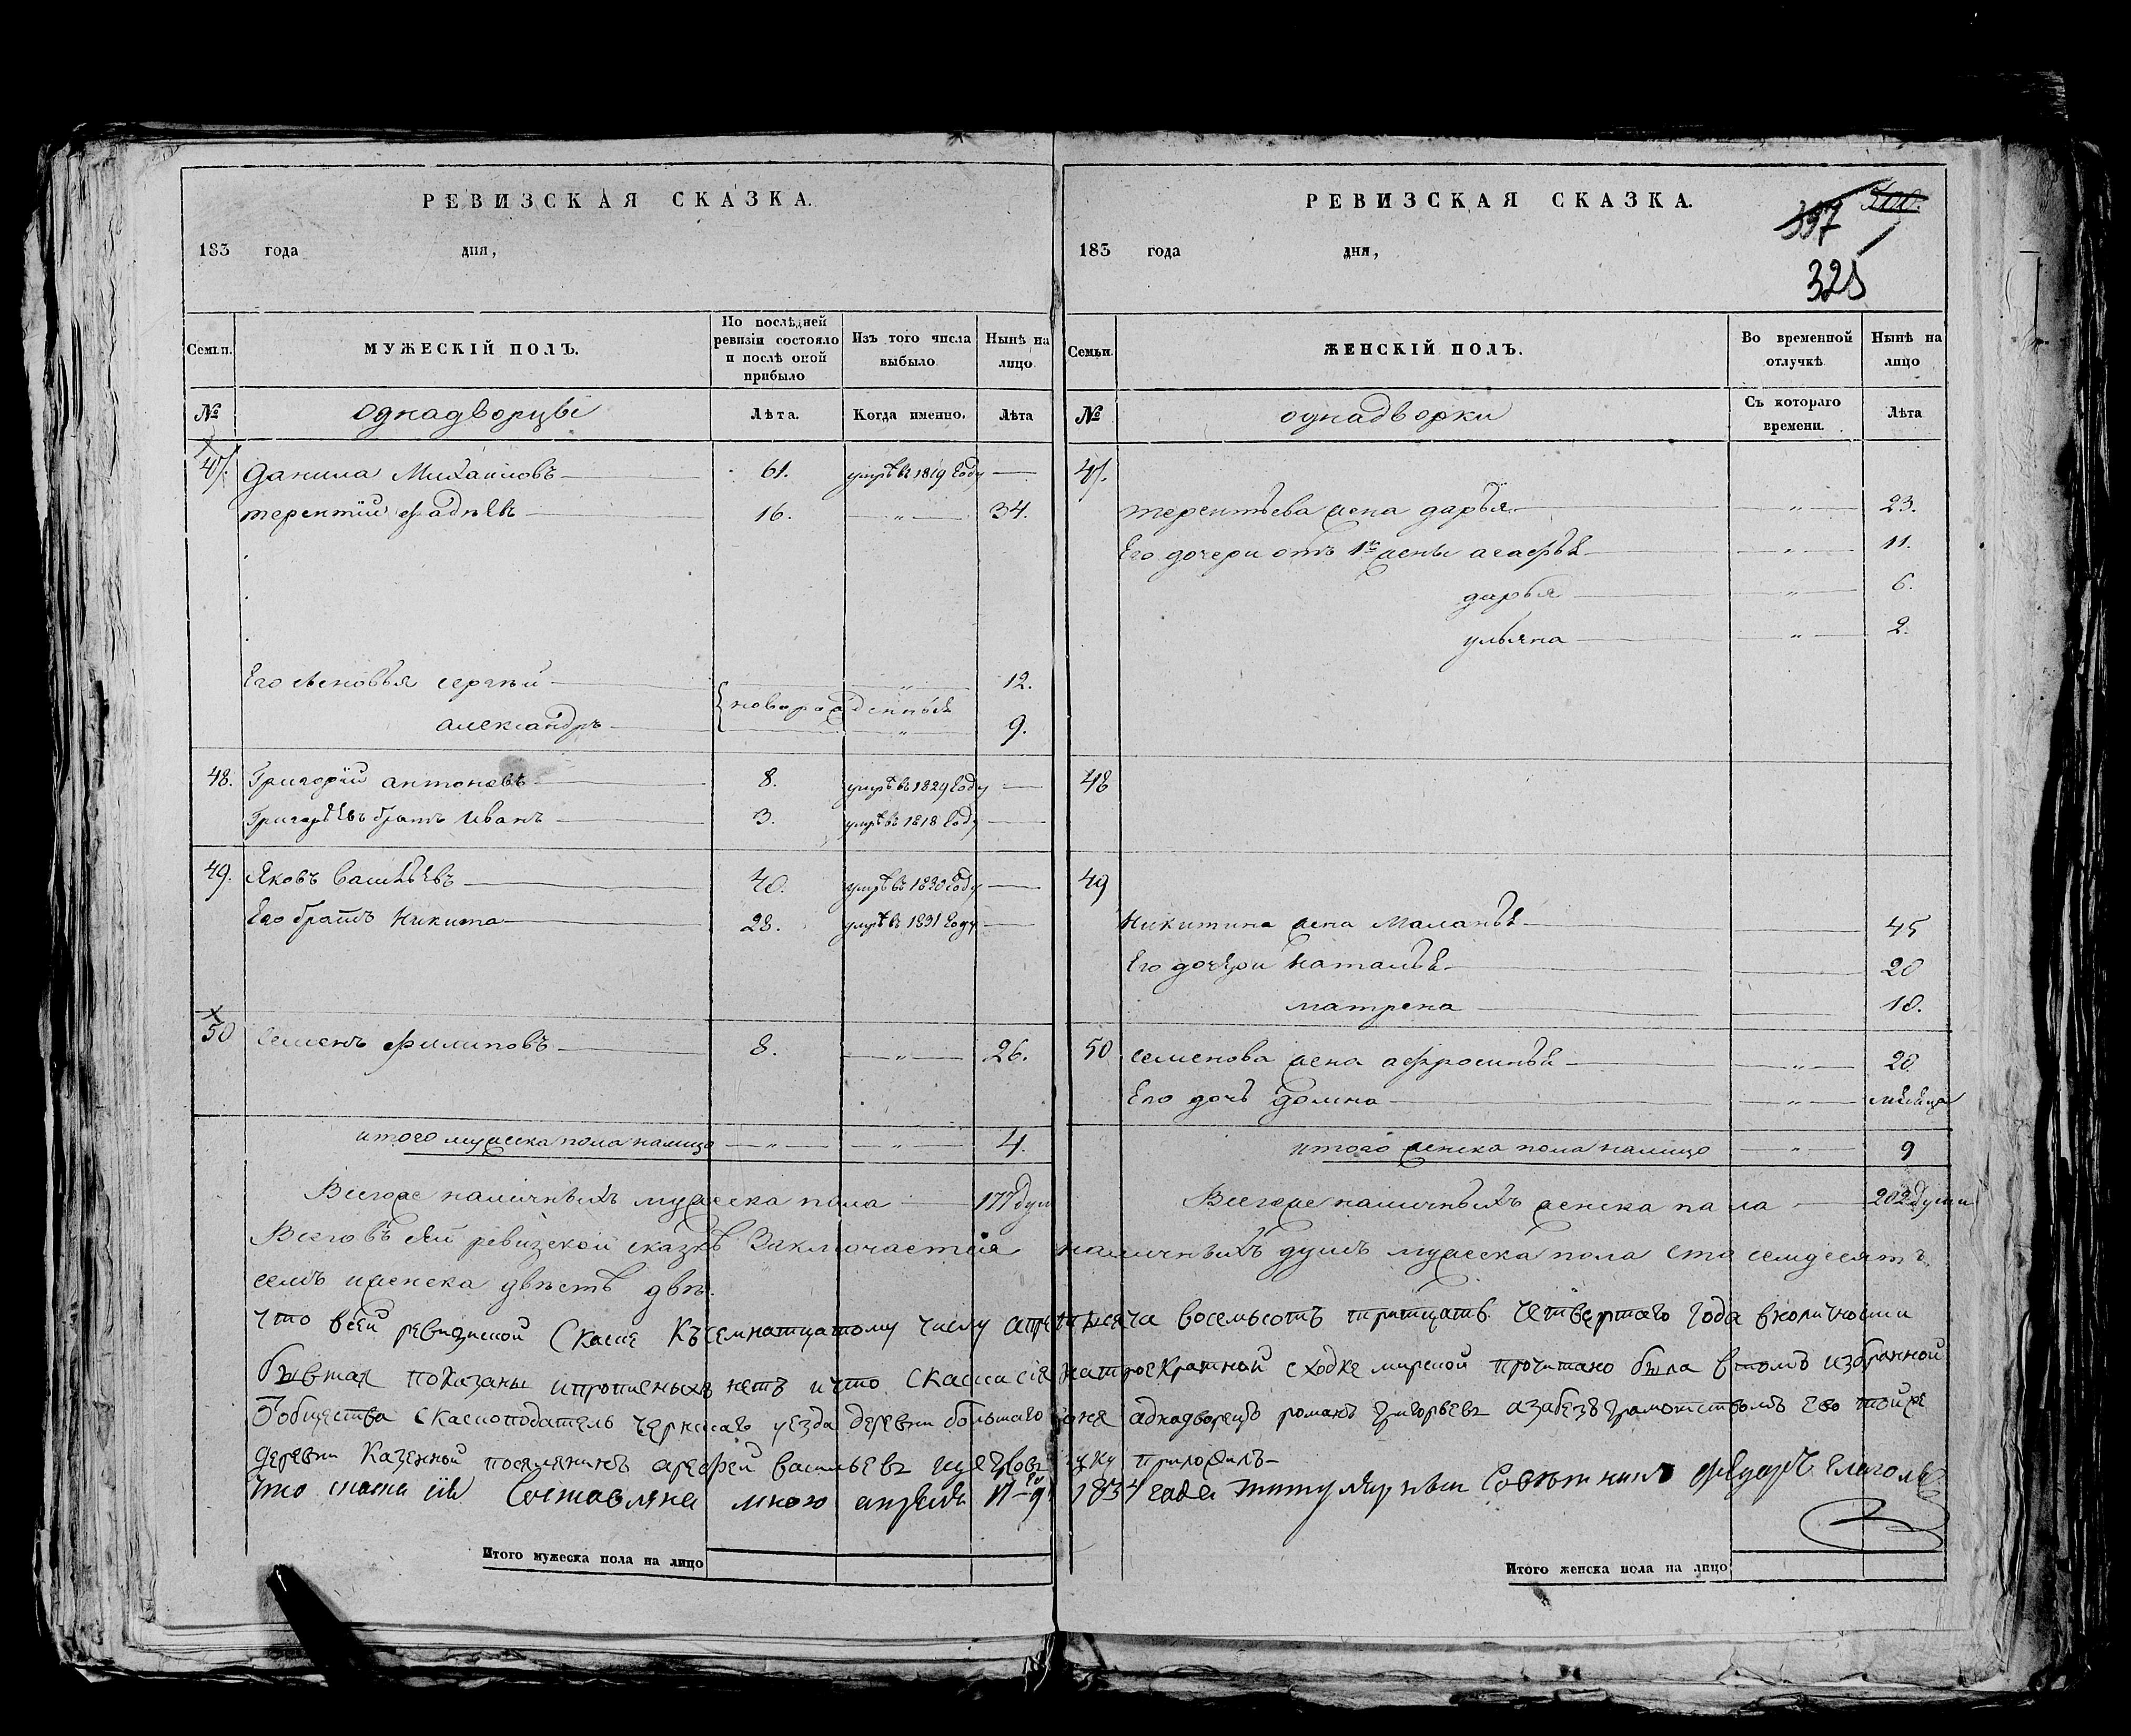 РЕВИЗСКАЯ СКАЗКА.
183 года дня,
Семьи. МУЖЕСКІЙ ПОЛЪ. По послѣдней ревизіи состояло и послѣ оной прибыло Изъ того числа выбыло Нынѣ на лицо
№ однадворцы Лѣта. Когда именно. Лѣта
47. данила Михаиловъ 61. умрѣ въ 1819 году
терентий фадѣевъ 16. " 34.
Его сыновья сергѣй " 12.
новорожденныя
александръ " 9.
48. Григорий антоновъ 8. умрѣ въ 1829 году
Григорьевъ братъ иванъ 3. умрѣ въ 1818 году
49. Яковъ васильевъ 40. умрѣ въ 1830 году
Его братъ никита 28. умрѣ въ 1831 году
50 семенъ филиповъ 8. " 26.
итого мужеска пола налицо " " 4.
Всегоже наличныхъ мужеска пола 177 душ
РЕВИЗСКАЯ СКАЗКА.
397 300.
325
183 года дня,
Семьи. ЖЕНСКІЙ ПОЛЪ. Во временной отлучкѣ Нынѣ на лицо
№ однадворки Съ котораго времени. Лѣта
47.
терентьева жена дарья " 23.
Его дочери отъ 1й жены агафья " 11.
дарья " 6.
ульяна " 2.
48
49
Никитина жена Маланья 45
Его дочери наталья 20
матрена 10.
50 семенова жена афросинья " 20
Его дочь домна " месяца
итого женска пола налицо " 9
Всегоже наличныхъ женска пола 202 души
Всего въ сей ревизской сказкѣ Заключается наличныхъ душъ мужеска пола сто семдесятъ
семь иженска двѣстѣ двѣ.
что всей ревизской Скаске Късемнатцатому числу апре тысяча восемьсотъ тритцать четвертаго года вналичносьти
бывшая показаны ипрописныхъ нетъ ичто скаска сія натроекратной сходке мирской прочитано была втомъ избранной
Собщества скаскоподатель уезда деревни большаго однадворецъ романъ григорьевъ азабезграмотствомъ его тойже
деревни Казенной поселянинъ арефей васильевъ руку приложилъ
Что скаска сія Составляна мною апреля 17го 1834 года титулярный Советникъ федоръ Глаголе
Итого мужеска пола на лицо
Итого женска пола на лицо